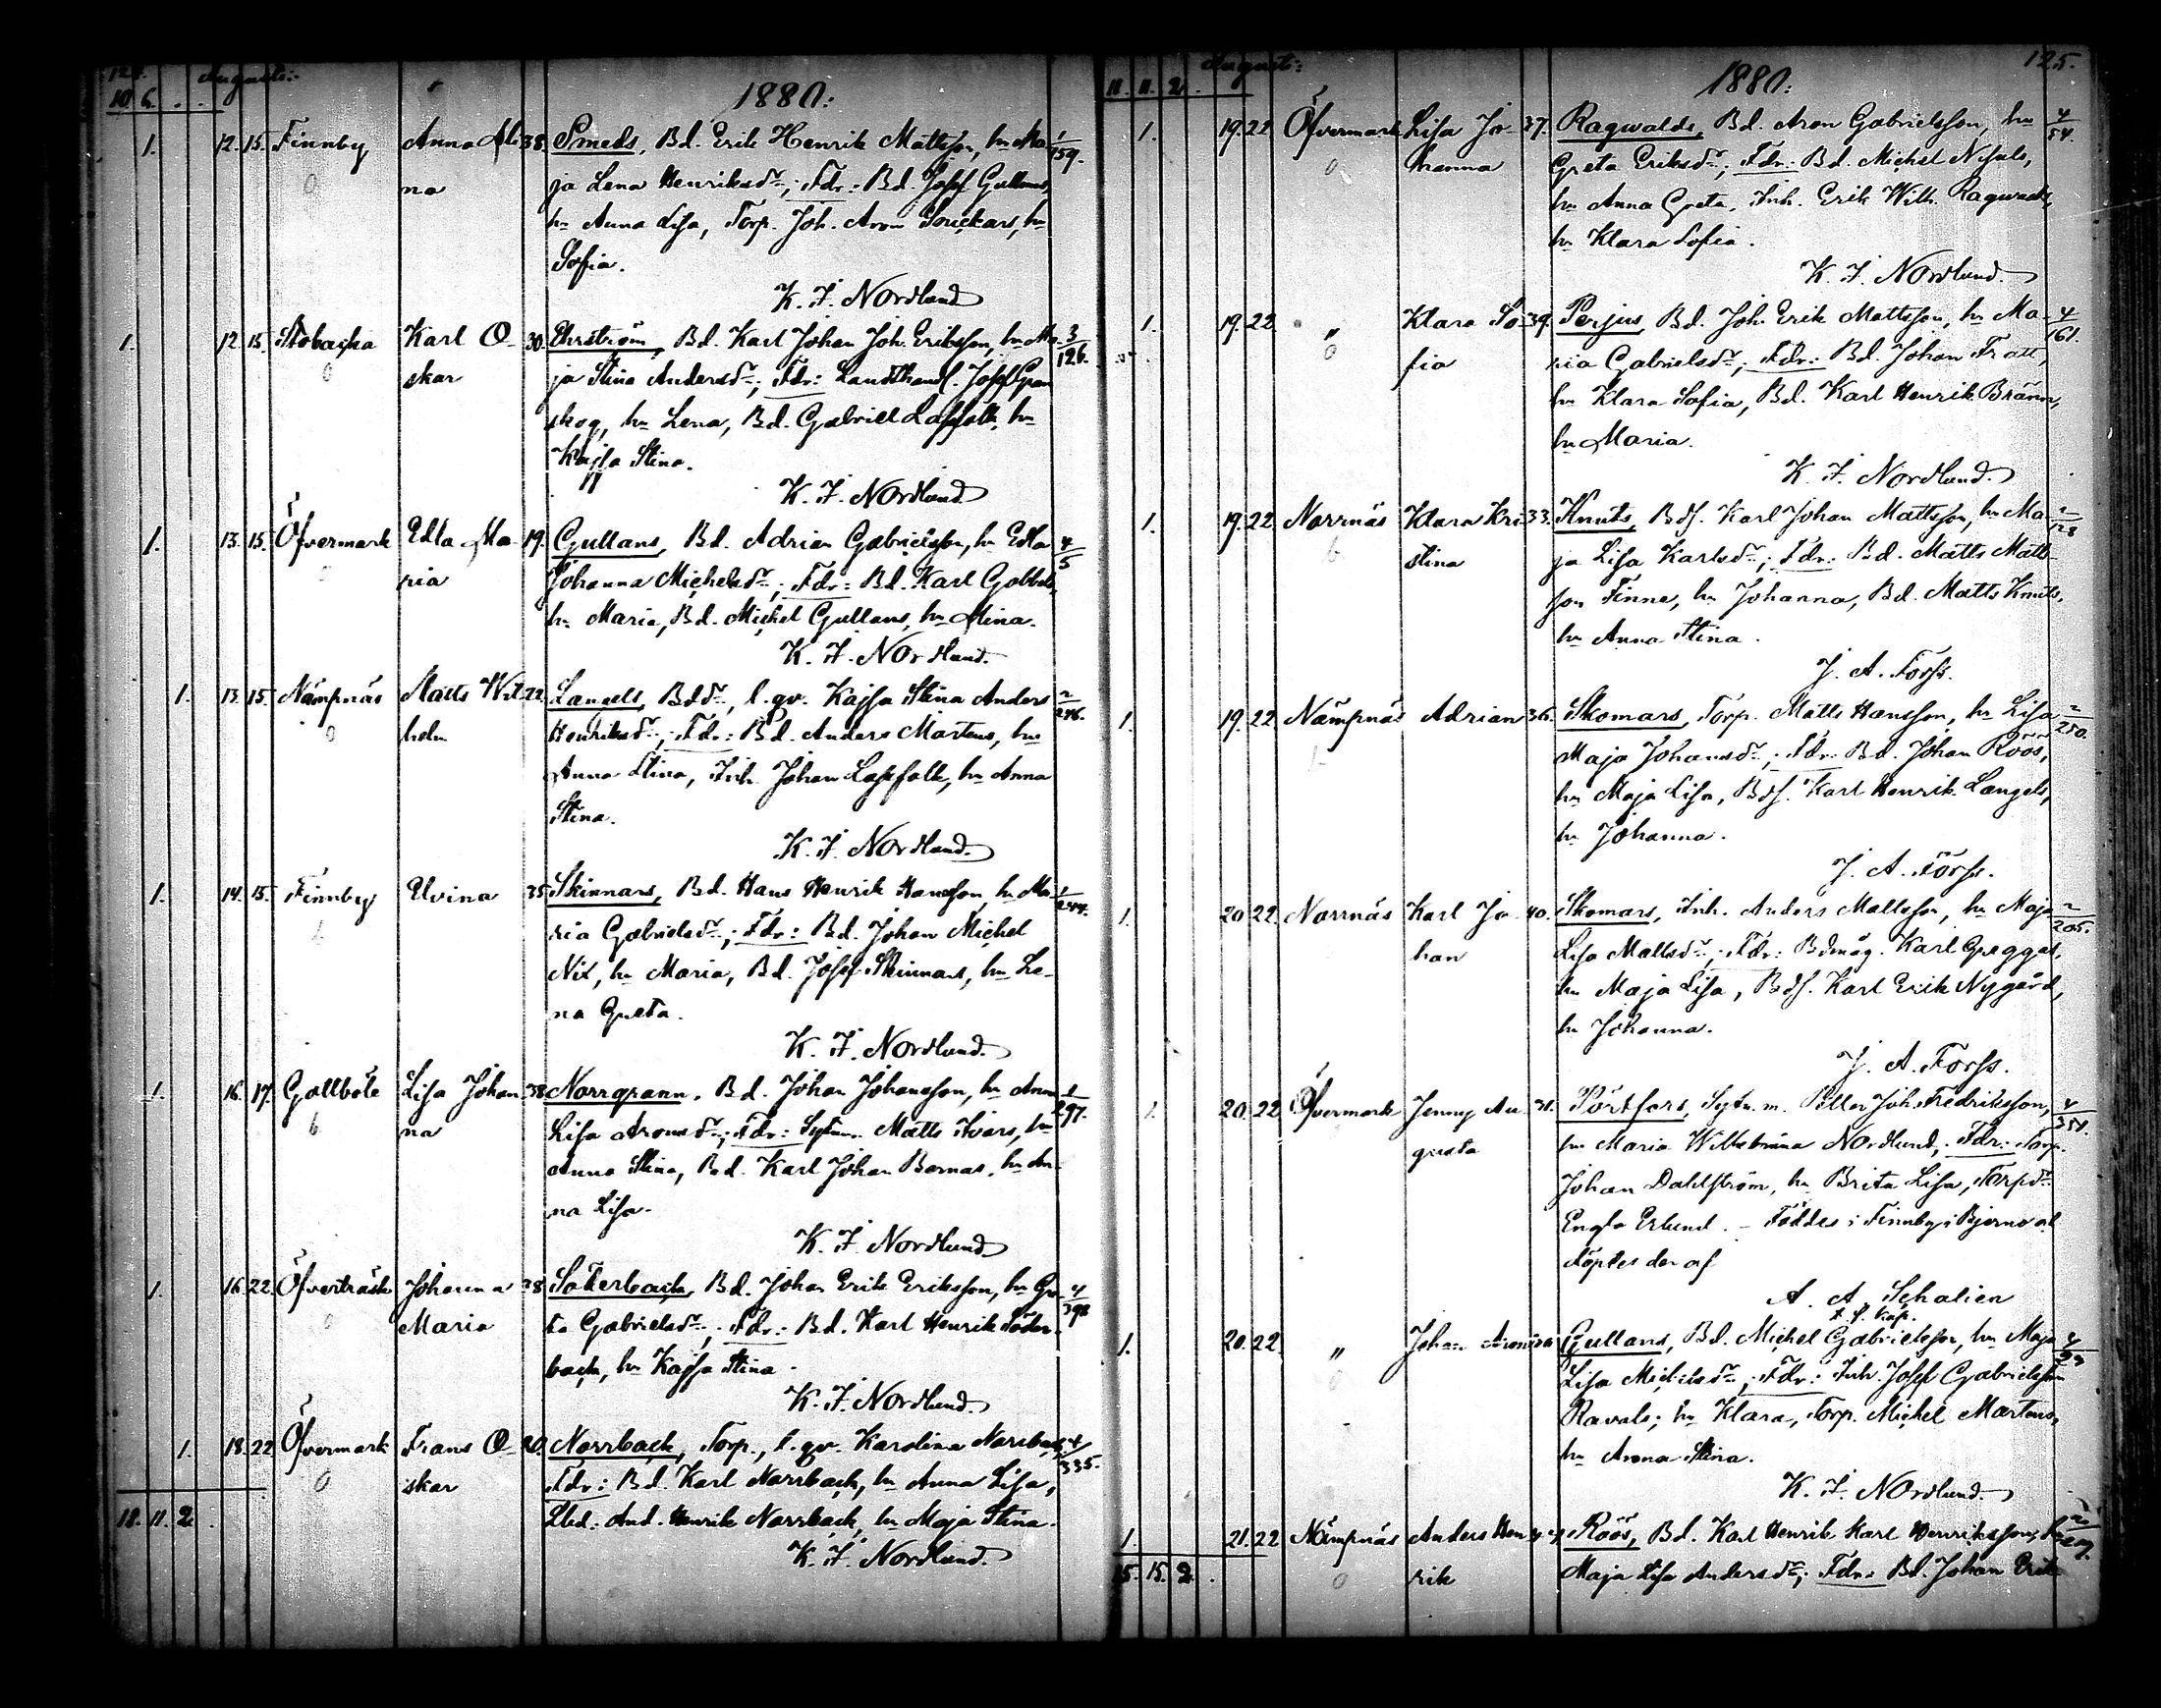 124. Augusti:
10. 6. . . 1880:
1. 12. 15. Finnby Anna Ali- 38. Smeds, Bd. Erik Henrik Mattsson, hu Ma- 1/159.
na ja Lena Henriksdr; Fdr: Bd. Josef Gullans,
hu Anna Lisa, Torp. Joh. Aron Snickars, hu
Sofia.
K. F. Nordlund
1. 12. 15. Stobacka Karl O- 30. Ehrström, Bd. Karl Johan Joh. Eriksson, hu Ma- 3/126.
skar ja Stina Andersdr; Fdr: Landthandl. Josef Gran
skog, hu Lena, Bd. Gabriel Lassfolk, hu
Kajsa Stina.
K. F. Nordlund
1. 13. 15. Öfvermark Edla Ma- 19. Gullans, Bd. Adrian Gabrielsson, hu Edla 4/5
ria Johanna Michelsdr; Fdr: Bd. Karl Gabbels,
hu Maria, Bd. Michel Gullans, hu Mina.
K. F. Nordlund.
1. 13. 15. Nämpnäs Matts Wil- 22. Langels, Bddr, l. qv. Kajsa Stina Anders 2/246.
helm Henriksdr; Fdr: Bd. Anders Martens, hu
Anna Stina, Inh. Johan Lassfolk, hu Anna
Stina.
K. F. Nordlund.
1. 14. 15. Finnby Elvina 35. Skinnars, Bd. Hans Henrik Hansson, hu Ma- 1/244.
ria Gabrielsdr; Fdr: Bd. Johan Michel
Nix, hu Maria, Bd. Josef Skinnars, hu Le-
na Greta.
K. F. Nordlund.
1. 16. 17. Gottböle Lisa Johan 38. Norrgrann, Bd. Johan Johansson, hu Anna 1/297.
na Lisa Aronsdr; Fdr: Sytnm. Matts Ivars, hu
Anna Stina, Bd. Karl Johan Bernas, hu An-
na Lisa.
K. F. Nordlund.
1. 16. 22. Öfverträsk Johanna 28. Söderback, Bd. Johan Erik Eriksson, hu Gre- 4/398
Maria ta Gabrielsdr; Fdr: Bd. Karl Henrik Söder-
back, hu Kajsa Stina.
K. F. Nordlund.
1. 18. 22. Öfvermark Frans O- 20. Norrback, Torp., l. qv. Karolina Norrback, 4/335.
skar Fdr: Bd. Karl Norrback, hu Anna Lisa,
18. 11. 2. And. Henrik Norrback, hu Maja Stina.
K. F. Nordlund.
Augusti: 125.
11. 11. 2. . 1880:
1. 19. 22. Öfvermark Lisa Jo- 37. Ragwalds, Bd. Aron Gabrielsson, hu 4/54.
hanna Greta Eriksdr; Fdr: Bd. Michel Nissas,
hu Anna Greta, Inh. Erik Wilh. Ragwalds,
hu Klara Sofia.
K. F. Nordlund.
1. 19. 22. „ Klara So- 39. Perjus, Bd. Joh. Erik Mattsson, hu Ma- 4/161.
fia ria Gabrielsdr; Fdr: Bd. Johan Frätt,
hu Klara Sofia, Bd. Karl Henrik Bränn,
hu Maria.
K. F. Nordlund.
1. 19. 22. Norrnäs Klara Kri- 33. Knuts, Bds. Karl Johan Mattsson, hu Ma- 2/128
stina ja Lisa Karlsdr; Fdr: Bd. Matts Matts-
son Finne, hu Johanna, Bd. Matts Knuts,
hu Anna Stina.
J. A. Forss.
1. 19. 22. Nämpnäs Adrian 36. Skomars, Torp. Matts Hansson, hu Lisa 2/280.
Maja Johansdr; Fdr: Bd. Johan Röös,
hu Maja Lisa, Bds. Karl Henrik Langels,
hu Johanna.
J. A. Forss.
1. 20. 22. Norrnäs Karl Jo- 40. Skomars, Inh. Anders Mattsson, hu Maja 2/205.
han Lisa Mattsdr; Fdr: Bdmåg. Karl Greggas,
hu Maja Lisa, Bds. Karl Erik Nygård,
hu Johanna.
J. A. Forss.
1. 20. 22. Öfvermark Jenny Au- 31. Pörtfors, Sytn. m. Petter Joh. Fredriksson, 4/351.
gusta hu Maria Wilhelmina Nordlund; Fdr: Torp.
Johan Dahlström, hu Brita Lisa, Torpdr
Engla Erlund. – Föddes i Finnby i Bjerno och
döptes der af
A. A.
t. f. Kap.
1. 20. 22. „ Johan Aron Gullans, Bd. Michel Gabrielsson, hu Maja
Lisa Michelsdr; Fdr: Inh. Josef Gabrielsson
Ravals; hu Klara, Torp. Michel Martens,
hu Anna Stina.
K. F. Nordlund.
1. 21. 22. Nämpnäs Anders Hen- Röös, Bd. Karl Henrik Karl Henriksson, hu
15. 15. 2. . rik Maja Lisa Andersdr; Fdr: Bd. Johan Erik